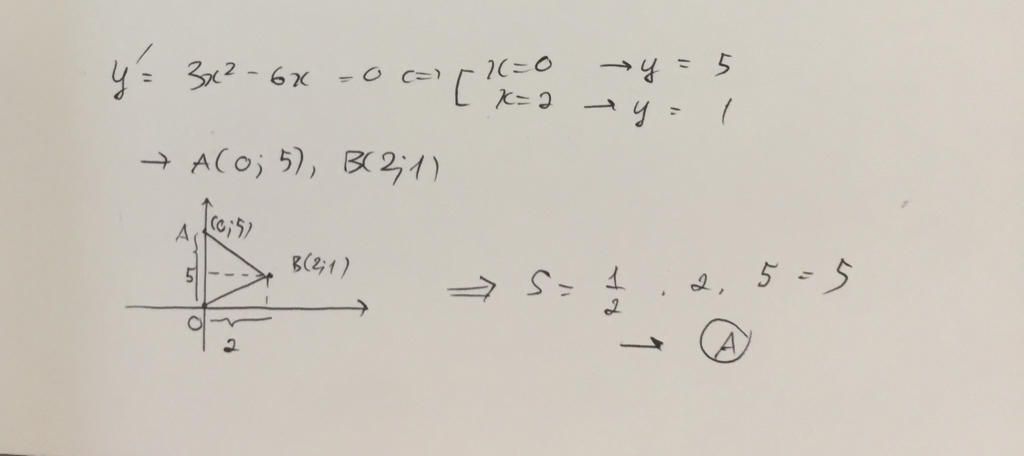 y' = 3x² - 6x = 0 <=> [ x=0 → y = 5
x=2 → y = 1
→ A(0; 5), B(2;1)
A (0;5)
5 B(2;1)
O
2
⟹ S = 1/2 . 2. 5 = 5
→ A